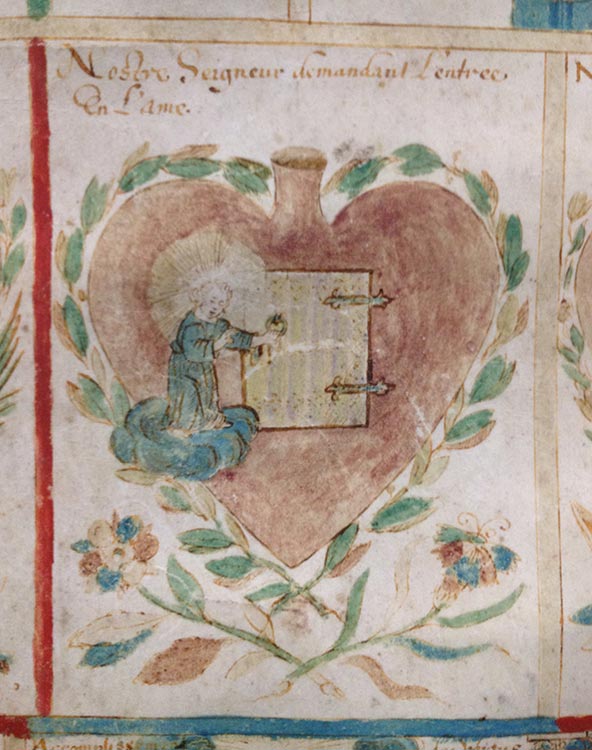 Nostre Seigneur demandant L'entree
En L'ame.
N
Accomplis